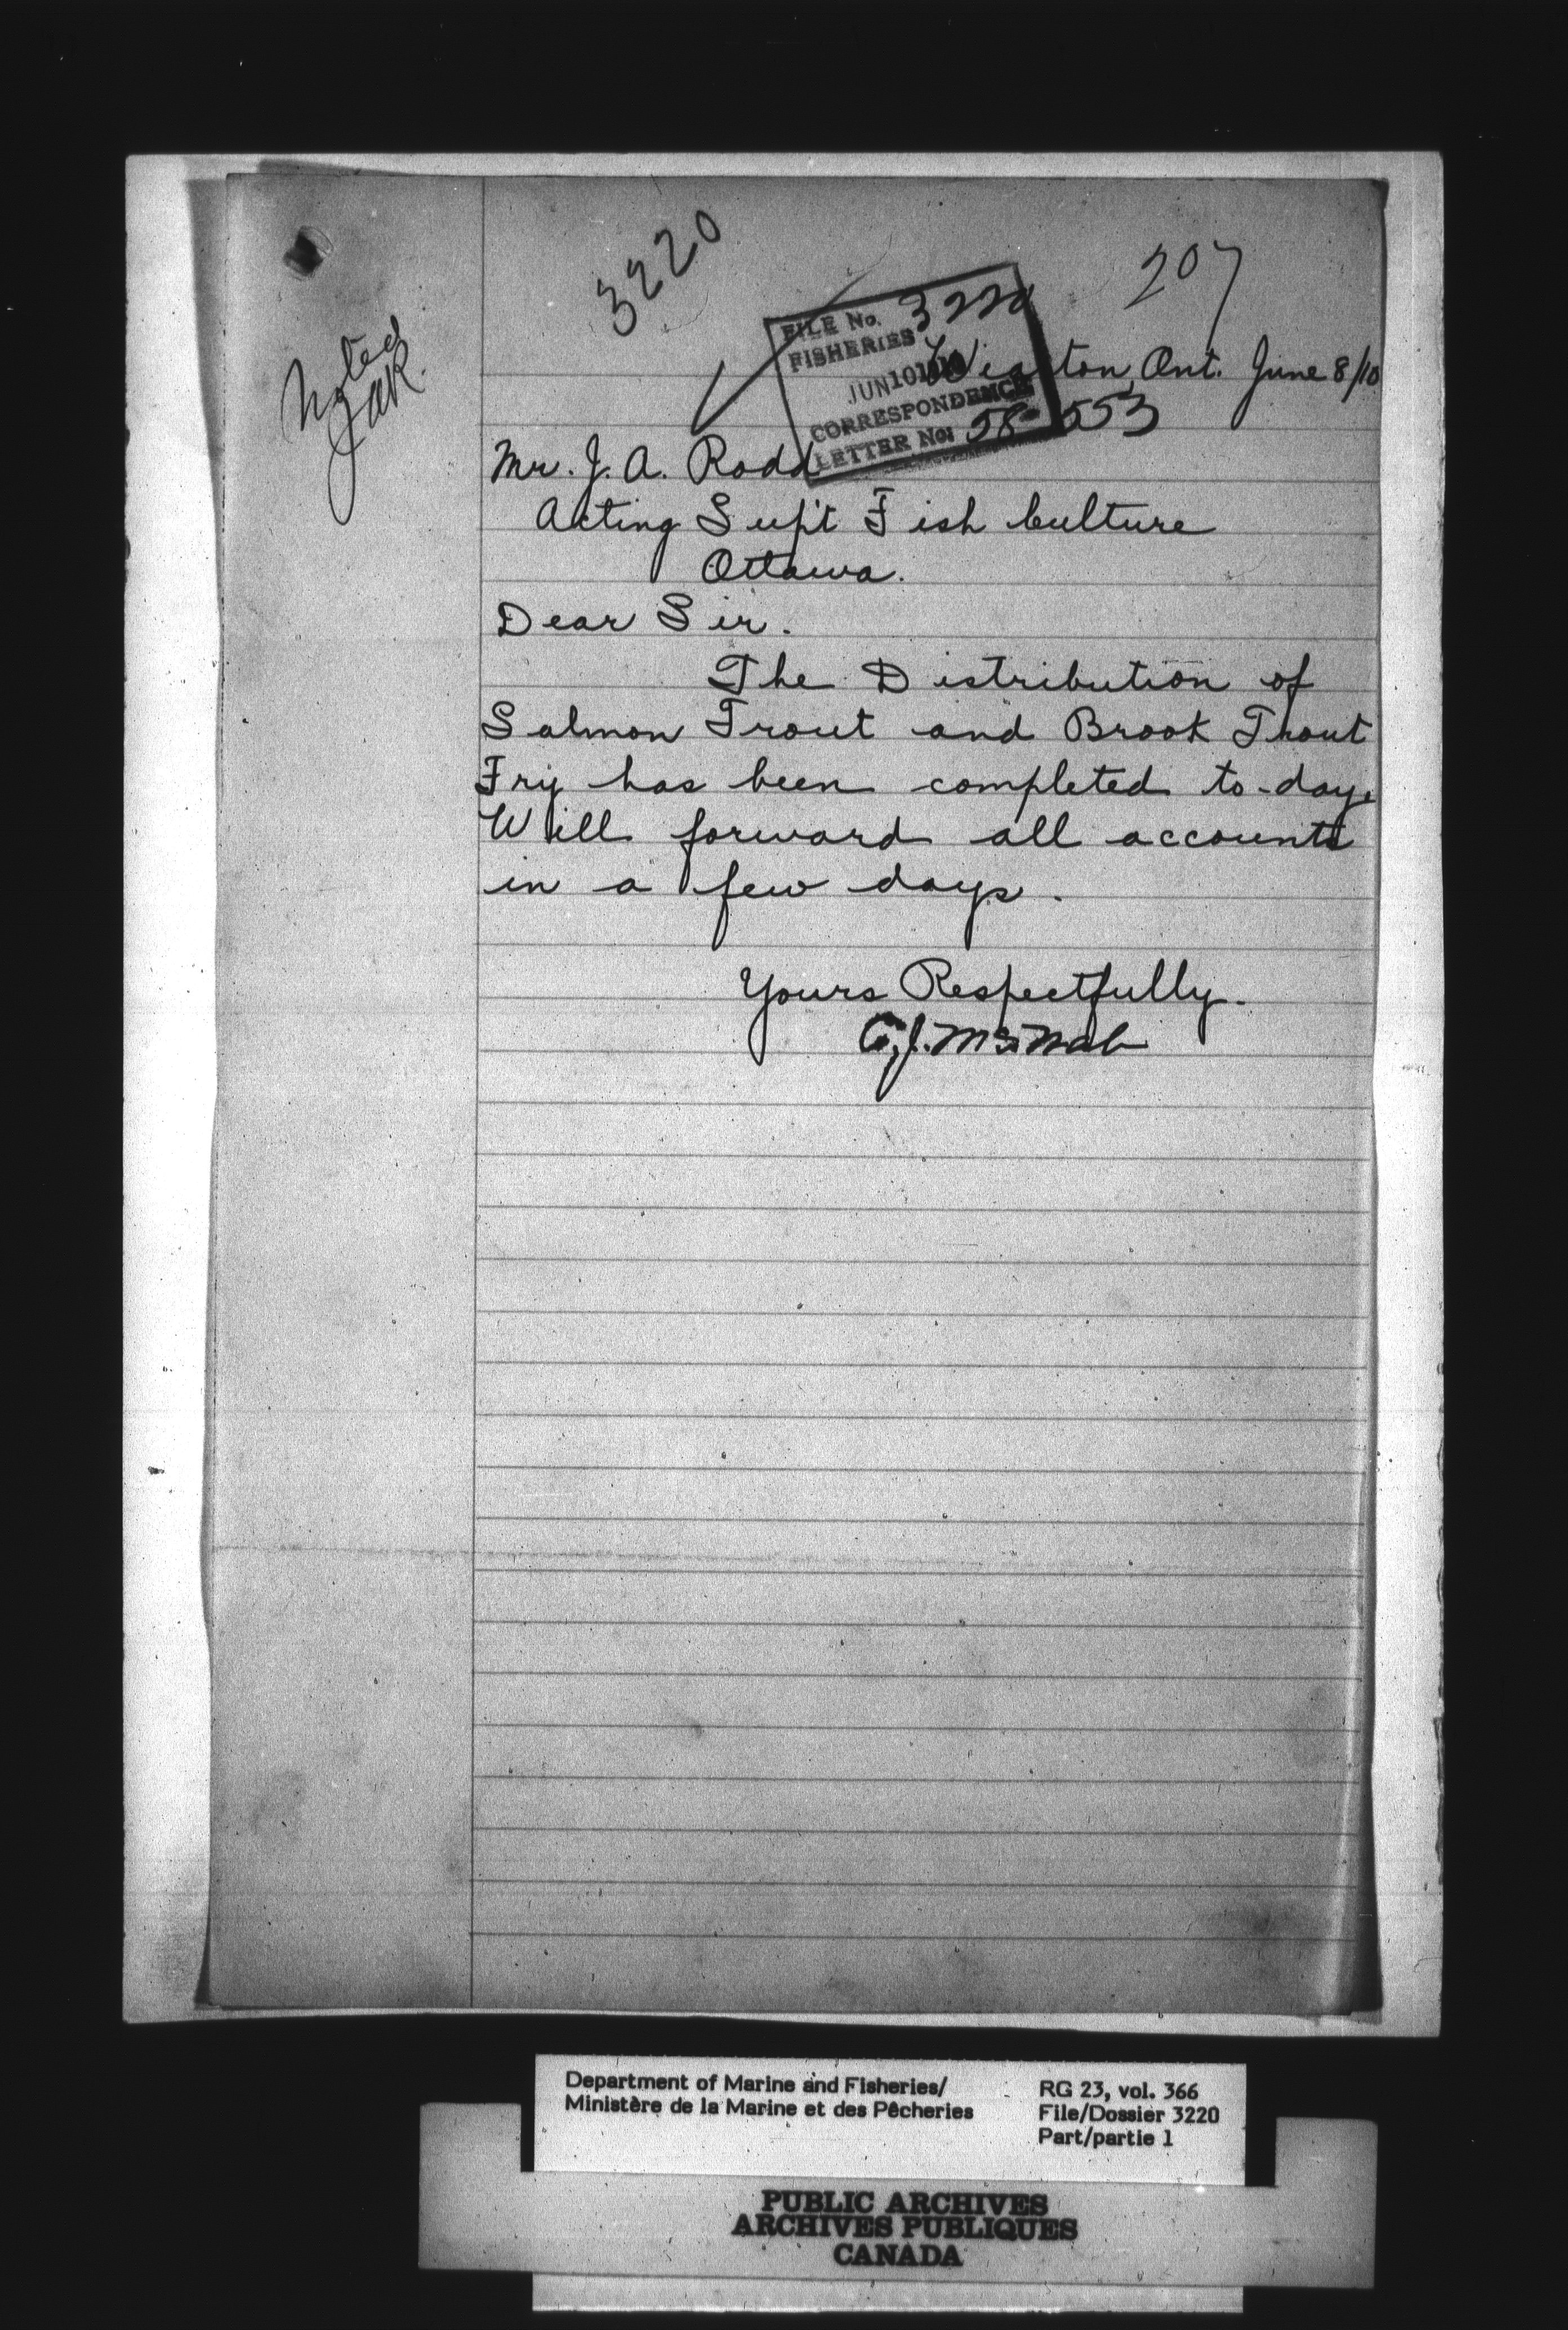 3220
207
Noted
JAR.
FILE No. 3220
FISHERIES
JUN 10 1910
CORRESPONDENCE
LETTER No: 58553
Wiarton, Ont. June 8/10
Mr. J. A. Rodd
Acting Sup't Fish Culture
Ottawa.
Dear Sir.
The Distribution of
Salmon Trout and Brook Trout
Fry has been completed to-day.
Will forward all accounts
in a few days.
Yours Respectfully.
McNab
Department of Marine and Fisheries/
Ministère de la Marine et des Pêcheries
RG 23, vol. 366
File/Dossier 3220
Part/partie 1
PUBLIC ARCHIVES
ARCHIVES PUBLIQUES
CANADA